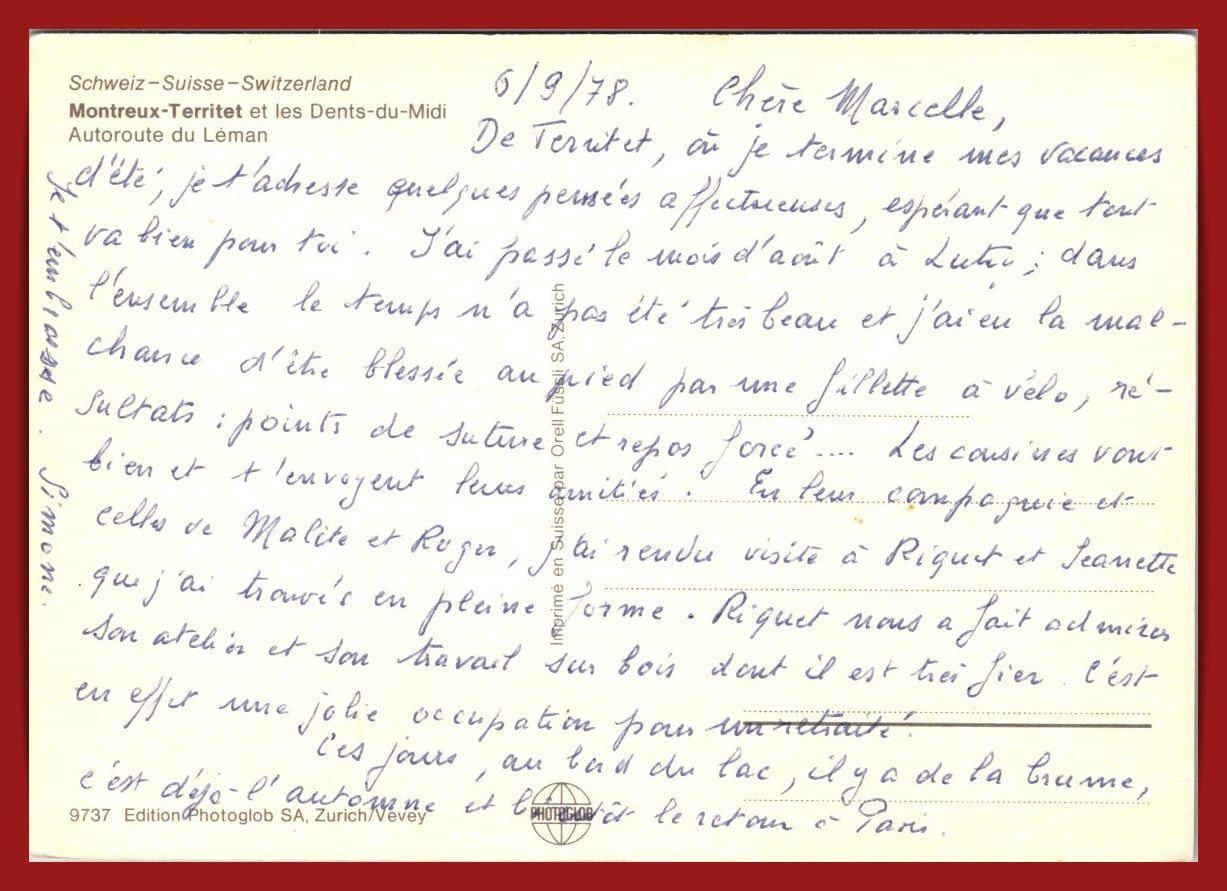 Schweiz – Suisse – Switzerland
Montreux-Territet et les Dents-du-Midi
Autoroute du Léman
6/9/78. Chère Marcelle,
De Territet, où je termine mes vacances
d'été, je t'adresse quelques pensées affectueuses, espérant que tout
va bien pour toi. J'ai passé le mois d'août à Lutry ; dans
l'ensemble le temps n'a pas été très beau et j'ai eu la mal-
chance d'être blessée au pied par une fillette à vélo, ré-
sultats : points de suture et repos forcé.... Les cousines vont
bien et t'envoyent leurs amitiés. En leur compagnie et
celles de Malite et Roger, j'ai rendu visite à Riquet et Jeannette
que j'ai trouvés en pleine forme. Riquet nous a fait admirer
son atelier et son travail sur bois dont il est très fier. C'est
en effet une jolie occupation pour un retraité.
Ces jours, au bord du lac, il y a de la brume,
c'est déjà l'automne et bientôt le retour à Paris.
Je t'embrasse. Simone.
Imprimé en Suisse par Orell Füssli SA, Zurich
9737 Edition Photoglob SA, Zurich/Vevey
PHOTOGLOB